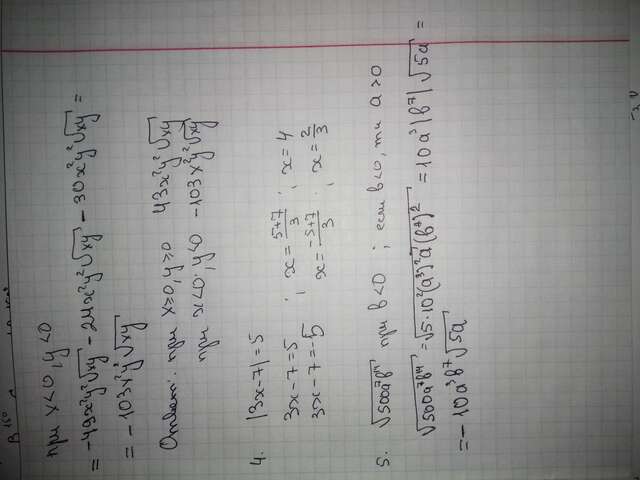 при x<0, y<0
= -49x²y²√xy - 24x²y²√xy - 30x²y²√xy =
= -103x²y²√xy
Ответ: при x≥0, y≥0 43x²y²√xy
при x<0, y<0 -103x²y²√xy
4. |3x-7|=5
3x-7=5 ; x=\frac{5+7}{3} ; x=4
3x-7=-5 x=\frac{-5+7}{3} ; x=\frac{2}{3}
5. √500a⁷b¹⁴ при b<0 ; если b<0, то a>0
√500a⁷b¹⁴ = √5·10²(a³)²a(b⁷)² = 10a³|b⁷|√5a =
= -10a³b⁷√5a